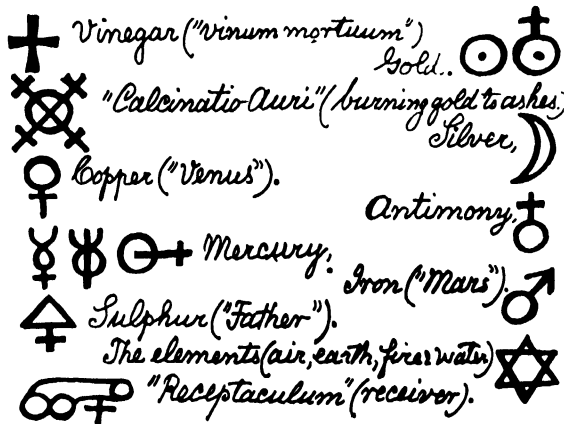 Vinegar ("vinum mortuum")
Gold..
"Calcinatio Auri" (burning gold to ashes.)
Silver,
Copper ("Venus").
Antimony,
Mercury.
Iron ("Mars").
Sulphur ("Father").
The elements (air, earth, fire & water)
"Receptaculum" (receiver).